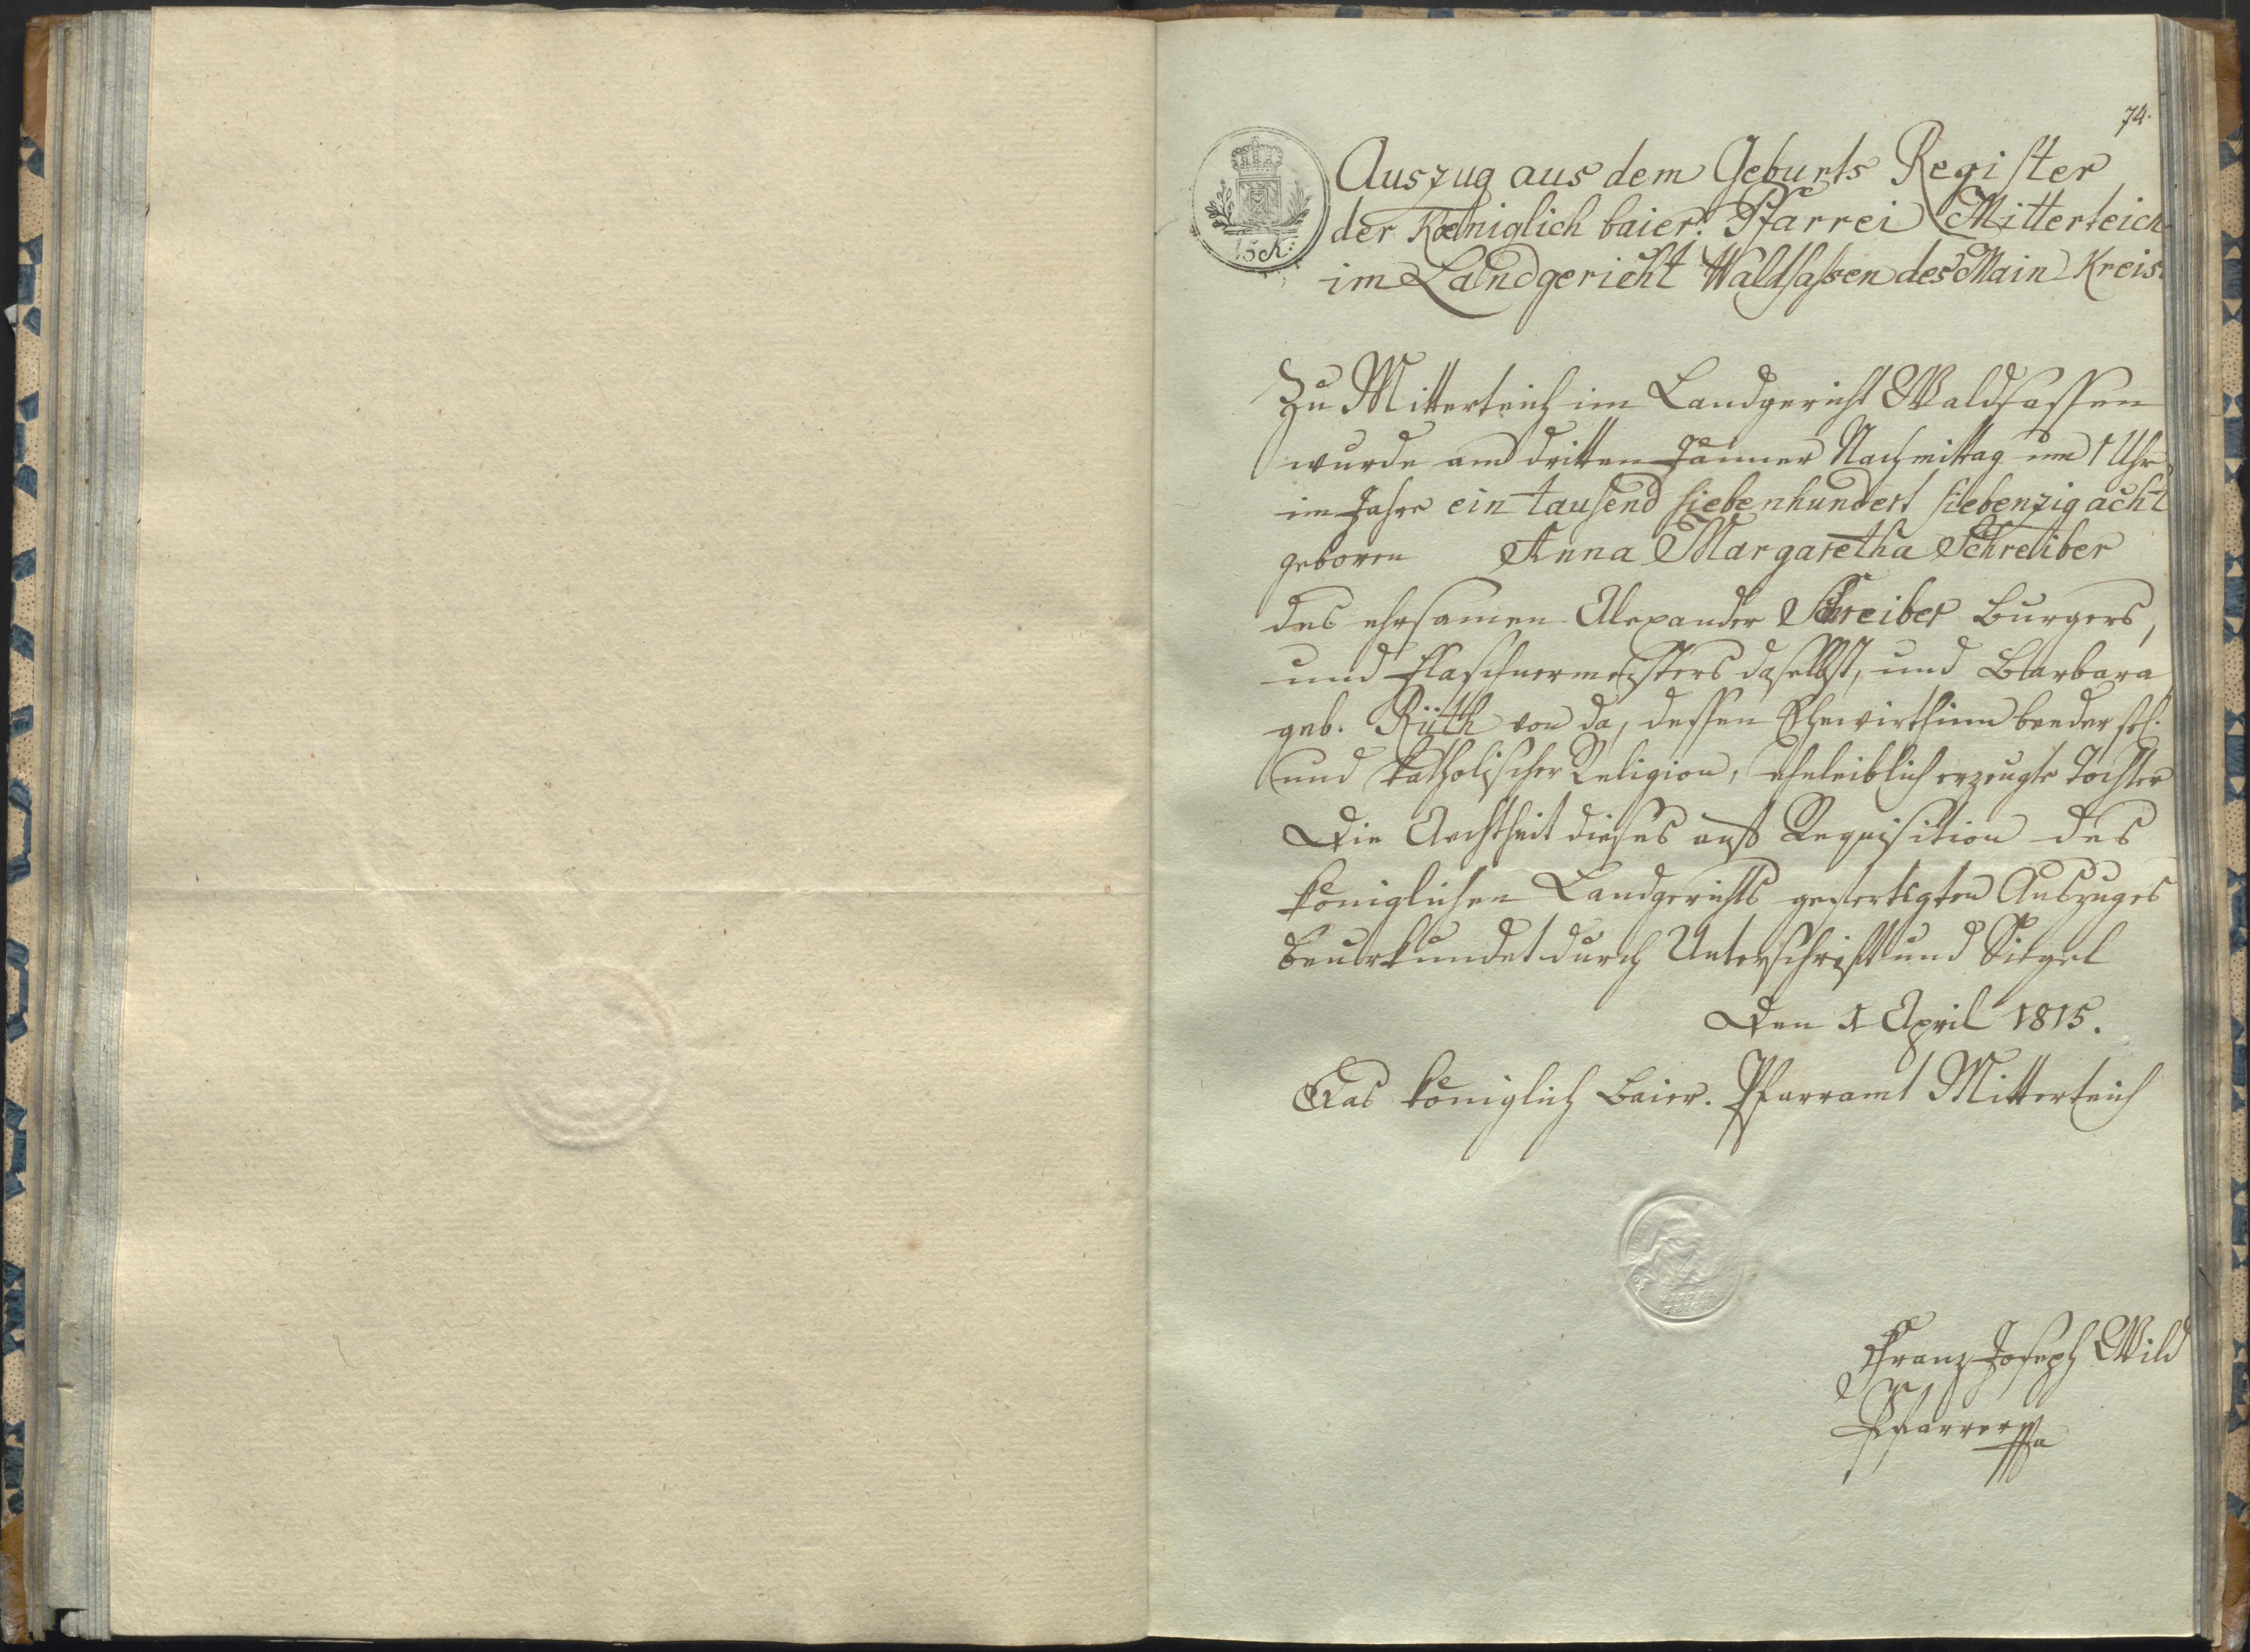 74.
15 K:
Auszug aus dem Geburts Register
der Koeniglich baier. Pfarrei Mitterteich
im Landgericht Waldsassen des Main Kreis
Zu Mitterteich im Landgericht Waldsassen
wurde am dritten Jänner Nachmittag um 1 Uhr
im Jahre ein tausend siebenhundert siebenzig acht
geboren Anna Margaretha Schreiber
des ehrsamen Alexander Schreiber Burgers,
und Flaschnermeisters daselbst, und Barbara
geb. Rüth von da, dessen Ehewirthinn beeder sel.
und katholischer Religion, eheleiblich erzeugte Tochter
Die Aechtheit dieses auf Requisition des
königlichen Landgerichts gefertigten Auszuges
beurkundet durch Unterschrift und Siegel
Den 1 April 1815.
Das königlich baier. Pfarramt Mitterteich
Franz Joseph Wild
Pfarrer